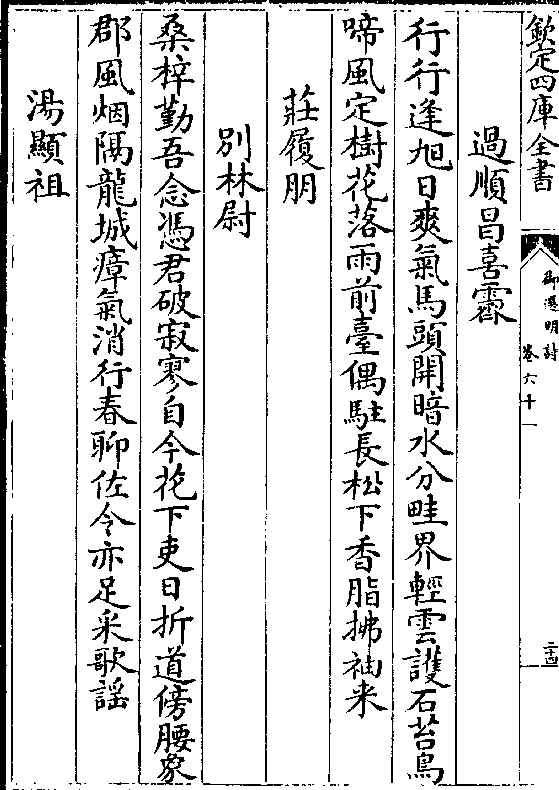 欽定四庫全書
御選明詩
卷六十一
二十四
過順昌喜霽
行行逢旭日爽氣馬頭開暗水分畦界輕雲護石苔鳥
啼風定樹花落雨前臺偶駐長松下香脂拂袖来
莊履朋
別林尉
桑梓勤吾念憑君破寂寥自今花下吏日折道傍腰象
郡風烟隔龍城瘴氣消行春聊佐令亦足采歌謡
湯顯祖